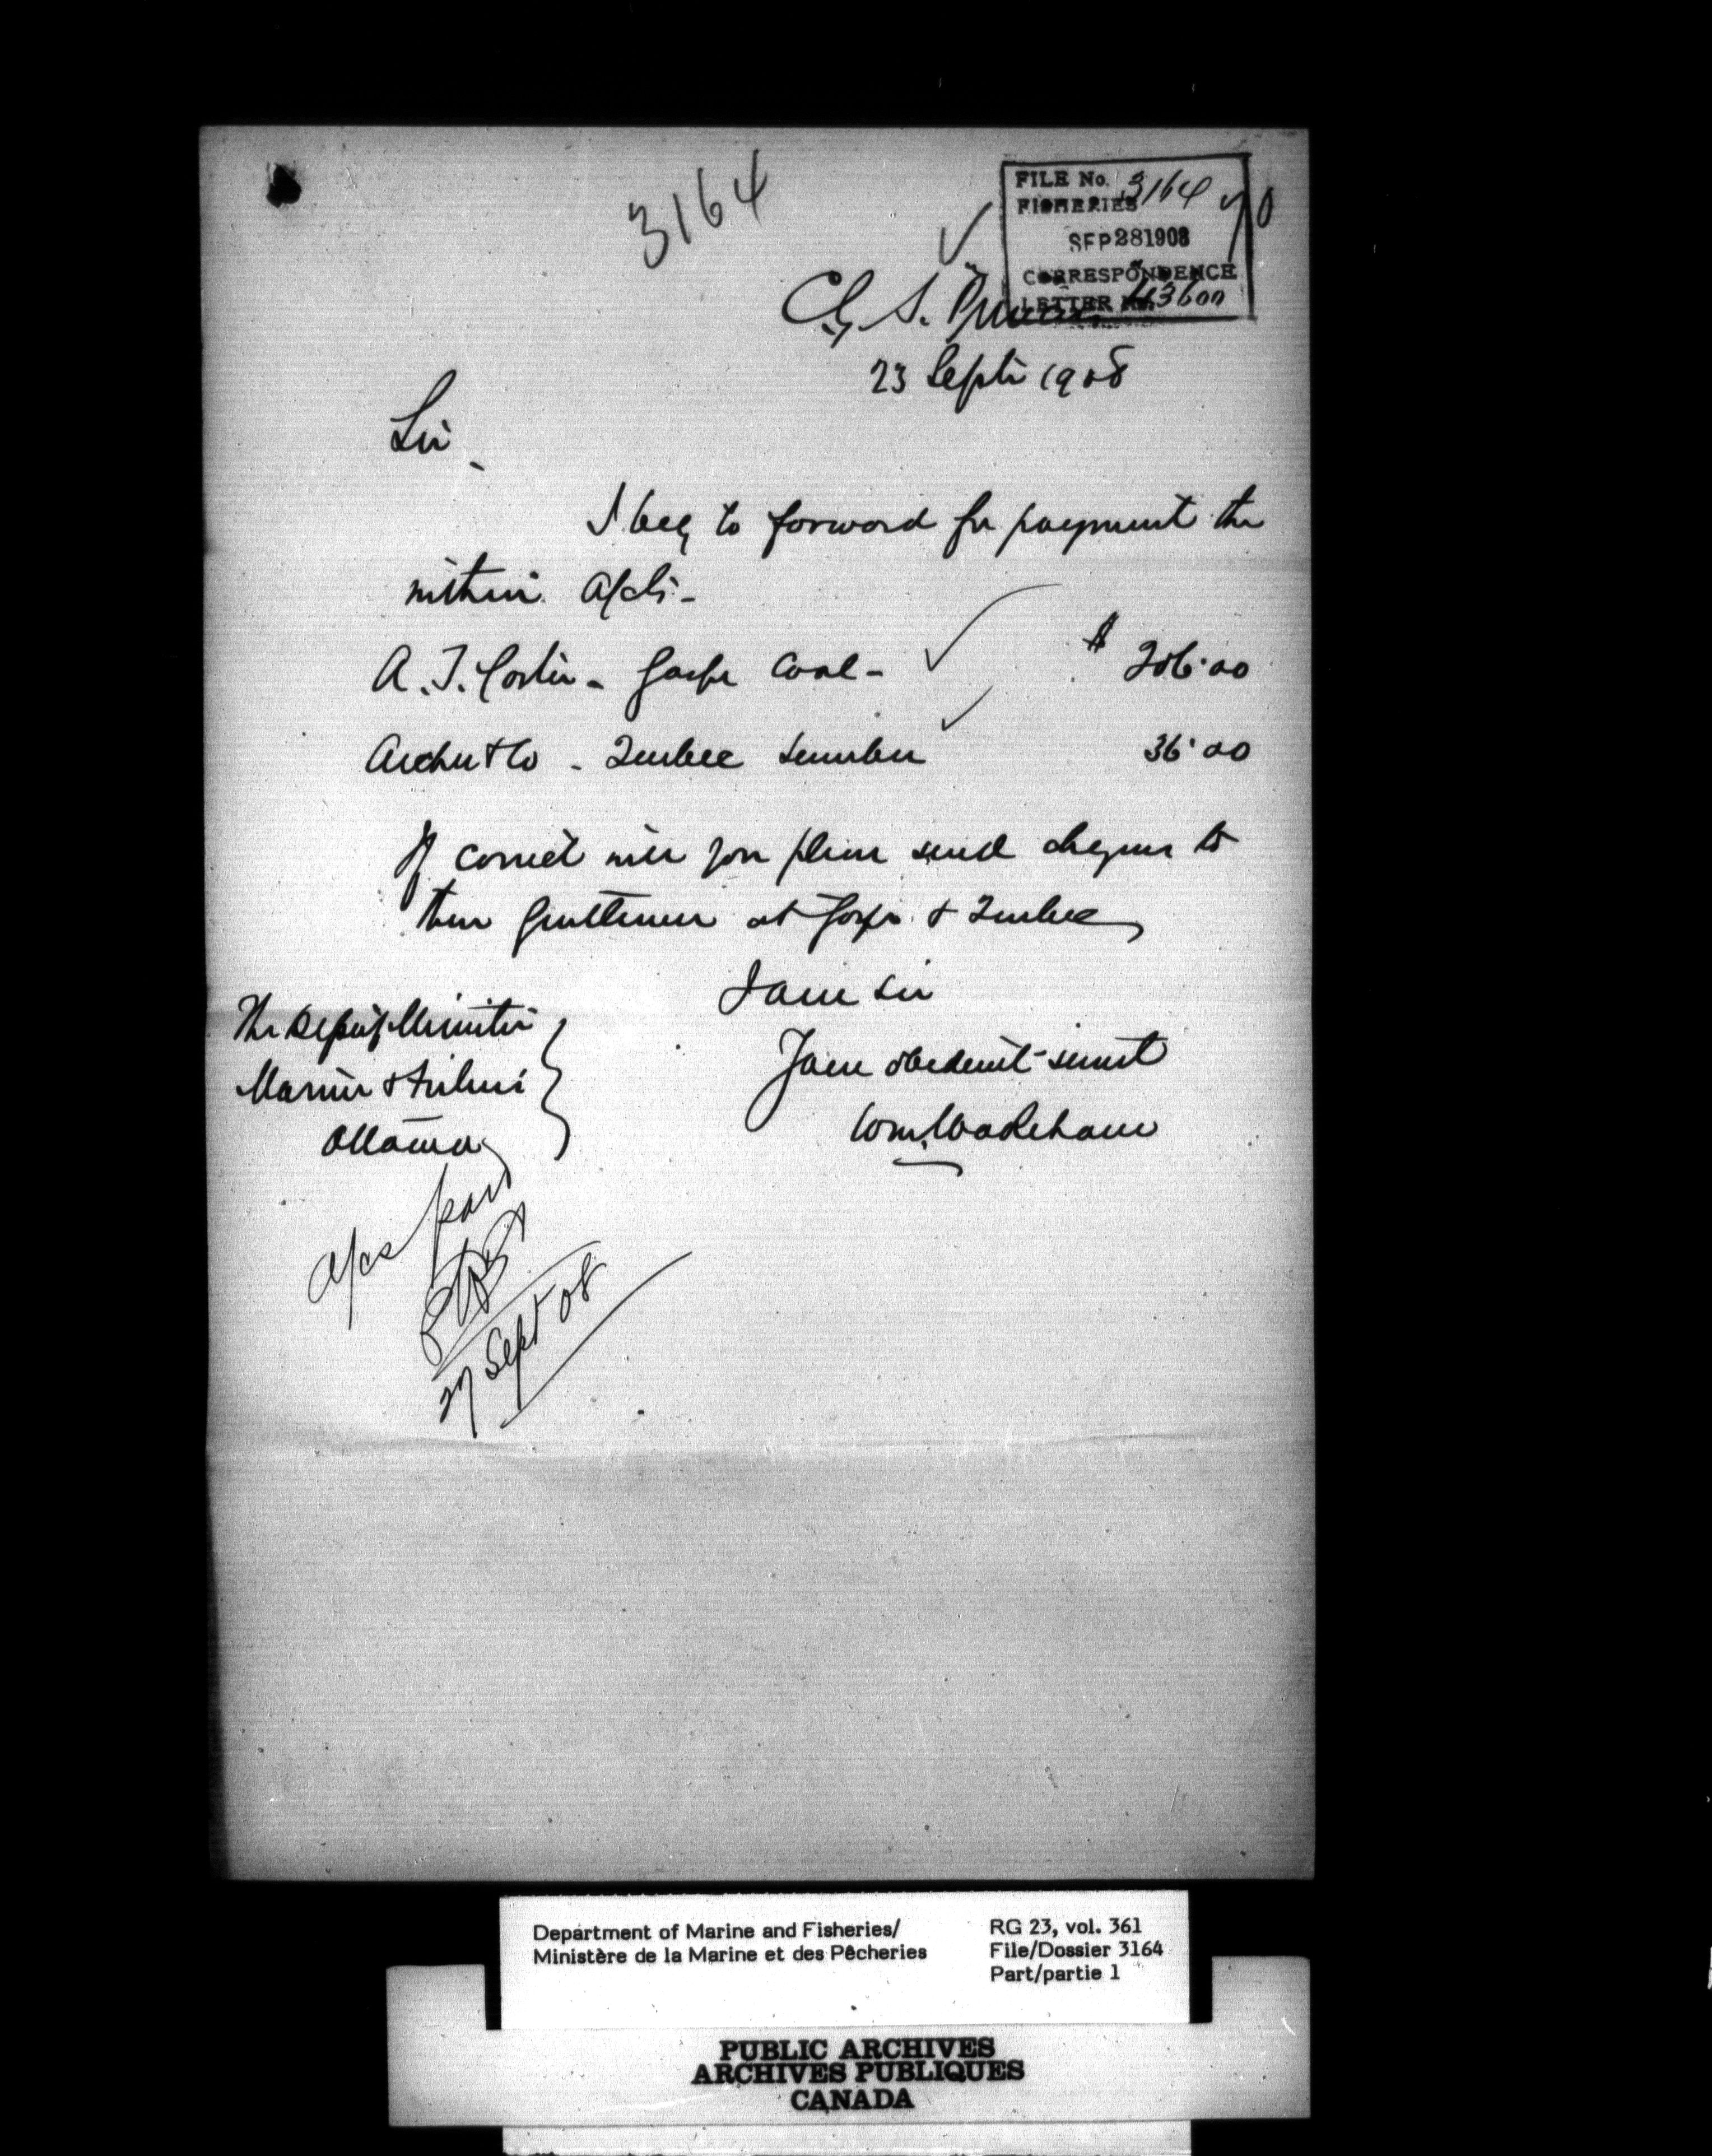 3164
FILE No. 3164
FISHERIES 70
SEP 28 1908
CORRESPONDENCE
LETTER No.
C. G. S. Princess
23 Sept 1908
Sir
I beg to forward for payment the
within a/cts -
A. T. Carter - Gaspe Coal - $ 206.00
Archer & Co - Quebec Lumber 36.00
If correct will you please send cheques to
these gentlemen at Gaspe & Quebec
I am Sir
Your obedient servant
Wm. Wakeham
The Deputy Minister
Marine & Fisheries
Ottawa
a/cs paid
27 Sept 08
Department of Marine and Fisheries/
Ministère de la Marine et des Pêcheries
RG 23, vol. 361
File/Dossier 3164
Part/partie 1
PUBLIC ARCHIVES
ARCHIVES PUBLIQUES
CANADA